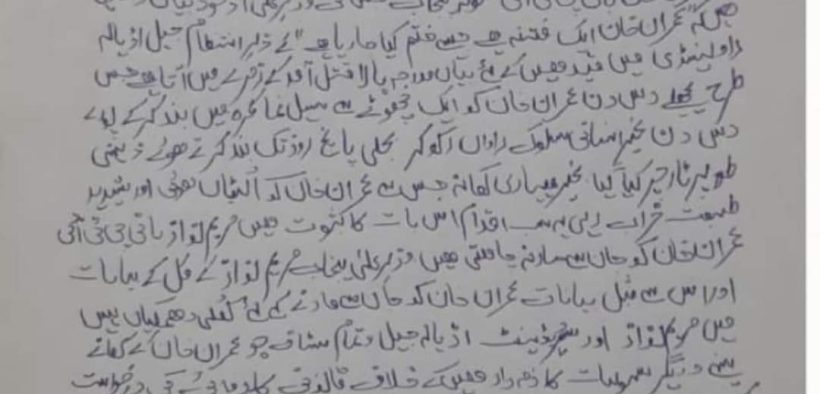 ہیں کہ "عمران خان ایک فتنہ ہے جسے ختم کیا جا رہا ہے" کے زیر اہتمام جیل اڈیالہ
راولپنڈی میں قید ہیں کے بیان مدرجہ بالا قتل آمد کے زمرے میں آتا ہے جس
طرح پچھلے دس دن عمران خان کو ایک چھوٹے سے سیل نما کمرہ میں بند کر کے پورے
دس دن غیر انسانی سلوک رواں رکھ کر بجلی پانچ روز تک بند کرتے ہوئے ذہنی
طور پر ٹارچر کیا گیا غیر معیاری کھانہ جس سے عمران خان کو الٹیاں ہوئی اور شدید
طبیعت خراب رہی یہ سب اقدام اس بات کا ثبوت ہیں مریم نواز بانی پی ٹی آئی
عمران خان کو جان سے مارنہ چاہتی ہیں وزیر اعلیٰ پنجاب مریم نواز کے کل کے بیانات
اور اس سے مثل بیانات عمران خان کو جان سے مارنے کی کھلی دھمکیاں ہیں
میں مریم نواز اور سپرٹینٹ اڈیالہ جیل و تمام سٹاف جو عمران خان کے کھانے
پینے و دیگر سہولیات کا ذمہ دار ہیں کے خلاف قانونی کاروائی کی درخواست